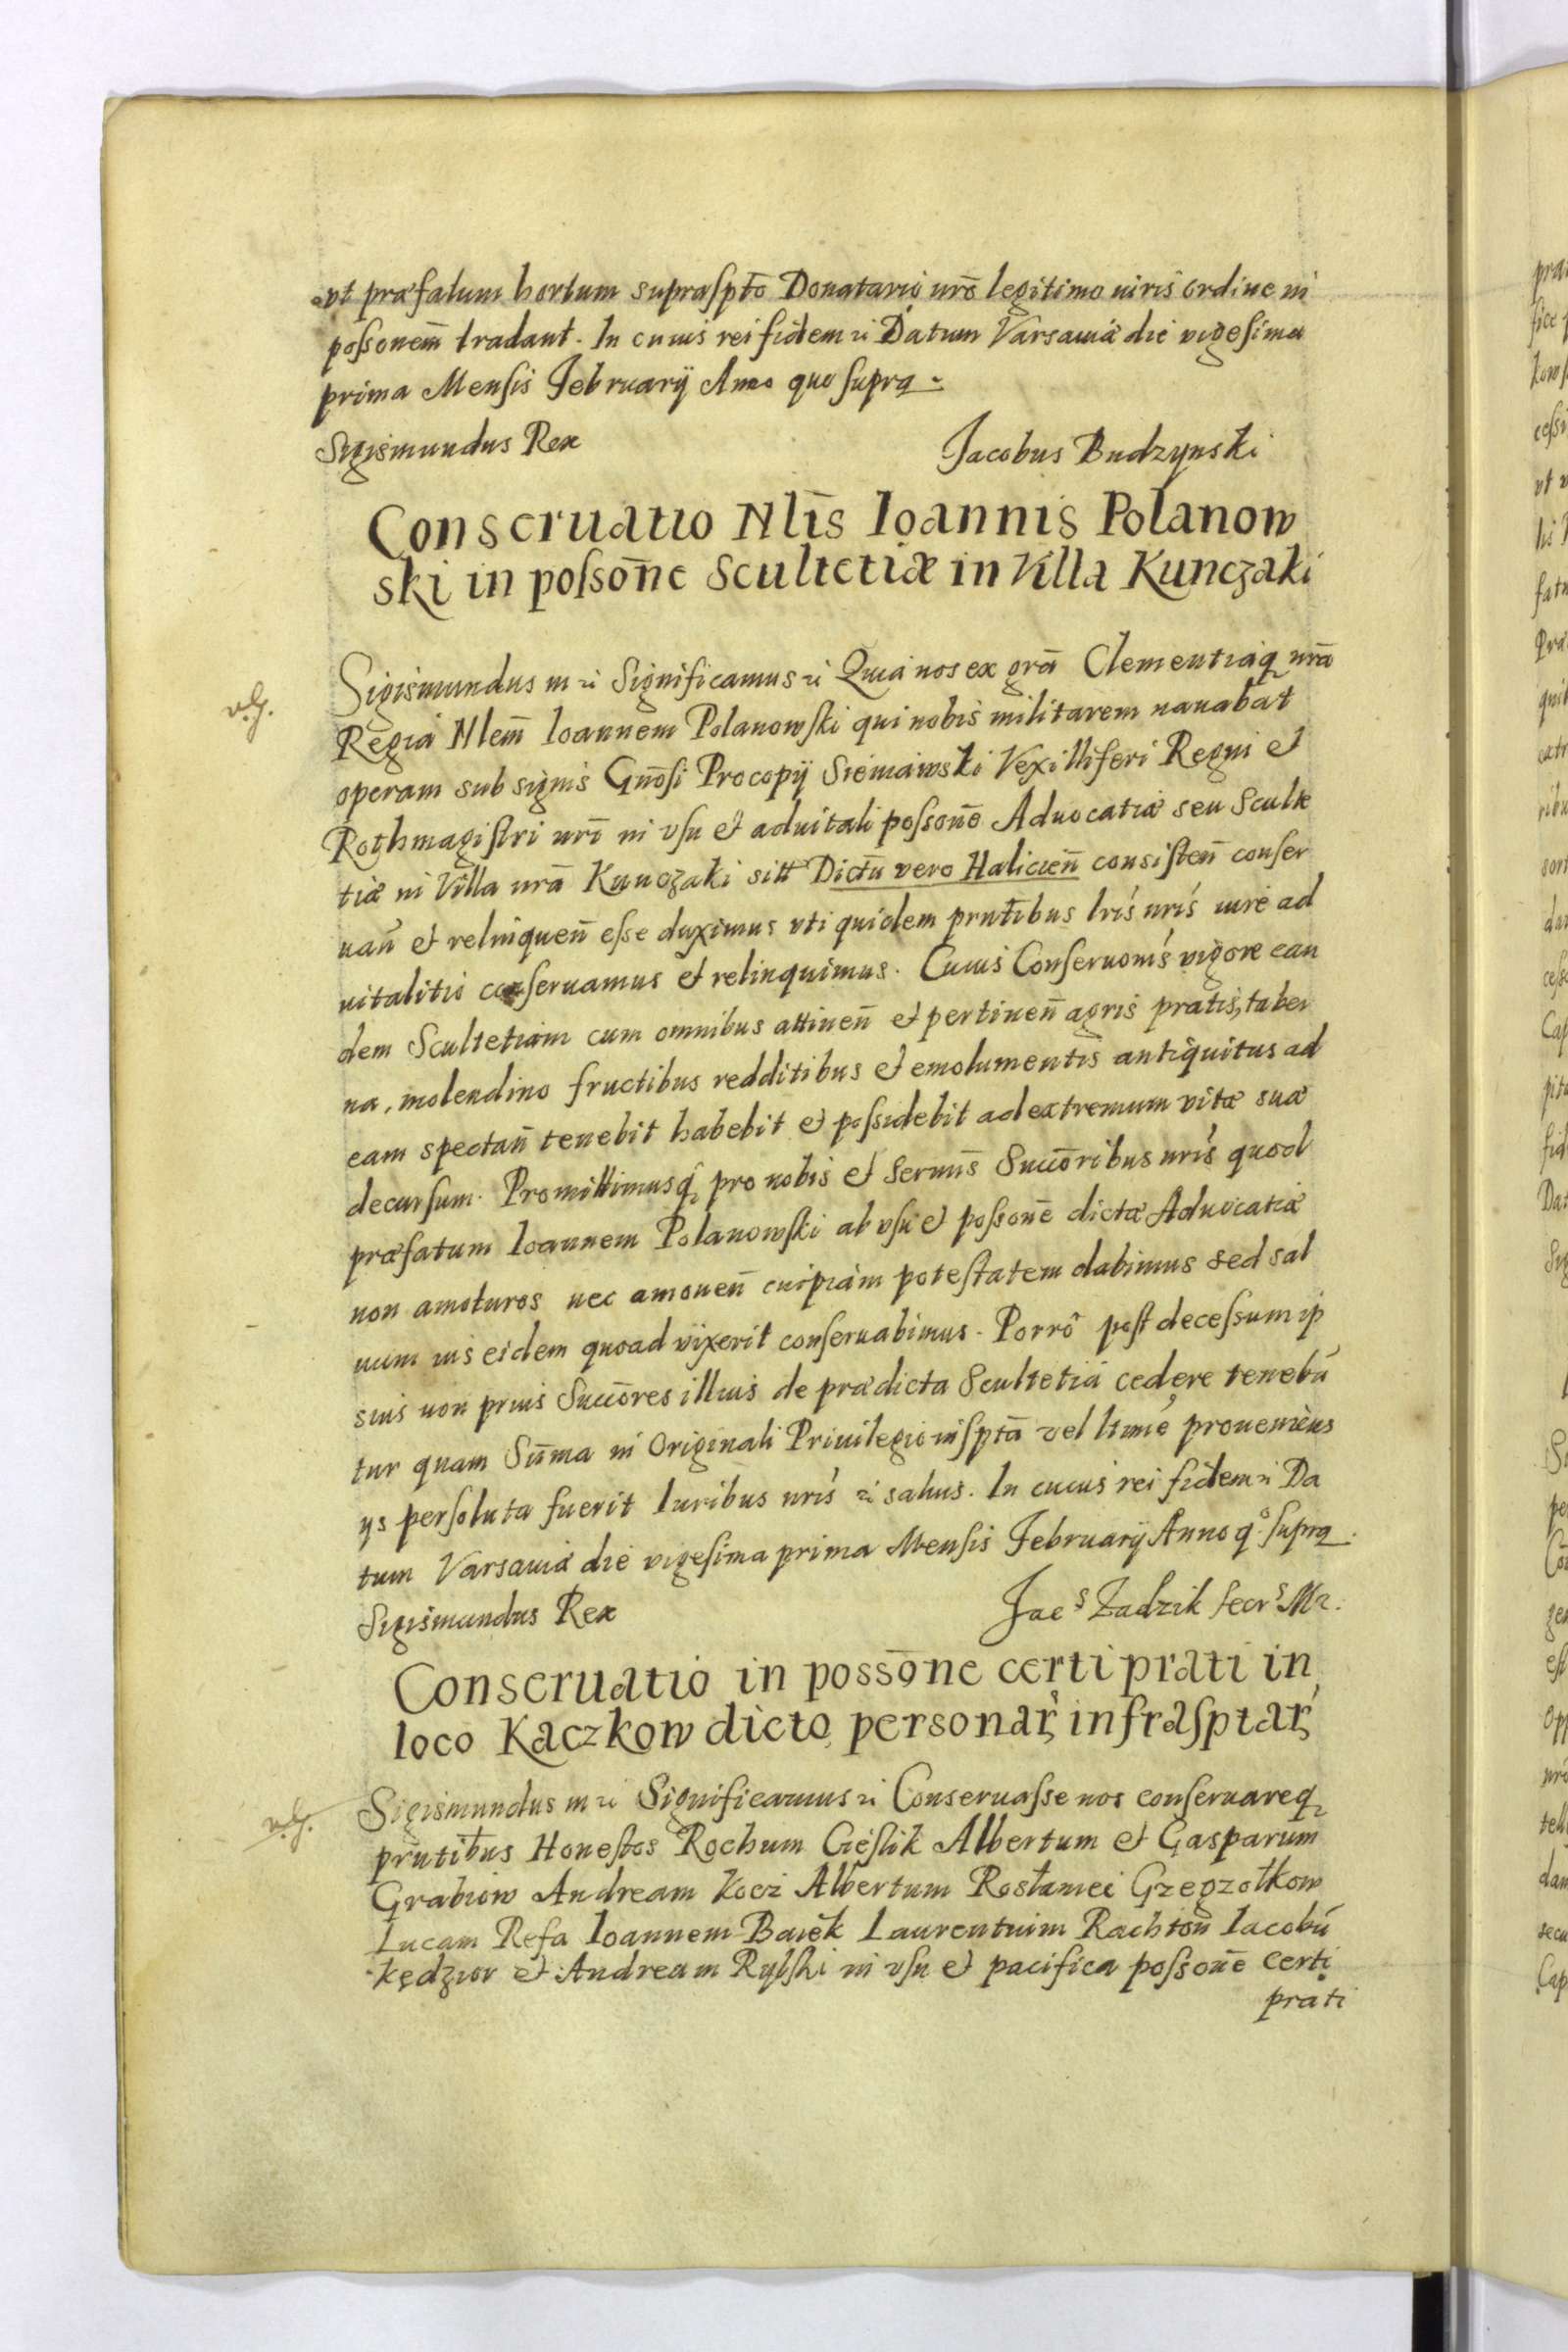 vt præfatum hortum supraſptõ Donatario nrõ legitimo iuris ordine in
poſsonem̃ tradant. In cuius rei fidem ꝛ Datum Varsauiæ die vigeſima
prima Menſis February Anno quo ſupra.
Sigismundus Rex
Jacobus Budzynski
Conseruatio Nlis̃ Ioannis Polanow
ski in poſsoñe Scultetiæ in Villa Kunczaki
v.g.
Sigismundus III ꝛ Significamus ꝛ Quia nos ex grã Clementiaq nrã
Regia Nlem̃ Ioannem Polanowſki qui nobis militarem nauabat
operam sub signis Gnõsi Procopy Sieniawski Vexilliferi Regni et
Rothmagiſtri nrĩ in vſu et aduitali poſsonẽ Aduocatiæ seu Sculte
tiæ in Villa nrã Kunczaki sitt Dictũ vero Haliciẽn conſiſteñ conſer
uañ et relinqueñ eſse duximus vti quidem prñtibus lris nris iure ad
uitalitio conſeruamus et relinquimus. Cuius Conſeruonis vigore ean
dem Scultetiam cum omnibus attineñ et pertineñ agris pratis, taber
na, molendino fructibus redditibus et emolumentis antiquitus ad
eam spectañ tenebit habebit et poſsidebit ad extremum vitæ suæ
decurſum. Promittimusq pro nobis et Sermis̃ Succõribus nris quod
præfatum Ioannem Polanowſki ab vſu et poſsonẽ dictæ Aduocatiæ
non amoturos nec amoueñ cuipiam poteſtatem dabimus sed sal
uum ius eidem quoad vixerit conſeruabimus. Porrô poſt deceſsum ip
sius non prius Succõres illius de prædicta Scultetia cedere tenebũ
tur quam Sum̃a in Originali Priuilegio inſptã vel ltimẽ proueniens
ys perſoluta fuerit Iuribus nris ꝛ saluis. In cuius rei fidem ꝛ Da
tum Varsauiæ die vigeſima prima Menſis February Anno qº ſupra.
Sigismundus Rex
Jacˢ Zadzik Secrˢ Mꝛ.
Conseruatio in possõne certi prati in
loco Kaczkow dicto personar infraſptar
v.g.
Sigismundus III ꝛ Significamus ꝛ Conseruaſse nos conſeruareq
prñtibus Honeſtos Rochum Cieſlik Albertum et Gasparum
Grabiow Andream Koczi Albertum Rosłaniei Gzegzołkow
Lucam Refa Ioannem Baiek Laurentium Rachtoñ Iacobũ
Kędzior et Andream Rybſki in vſu et pacifica poſsonẽ certi
prati